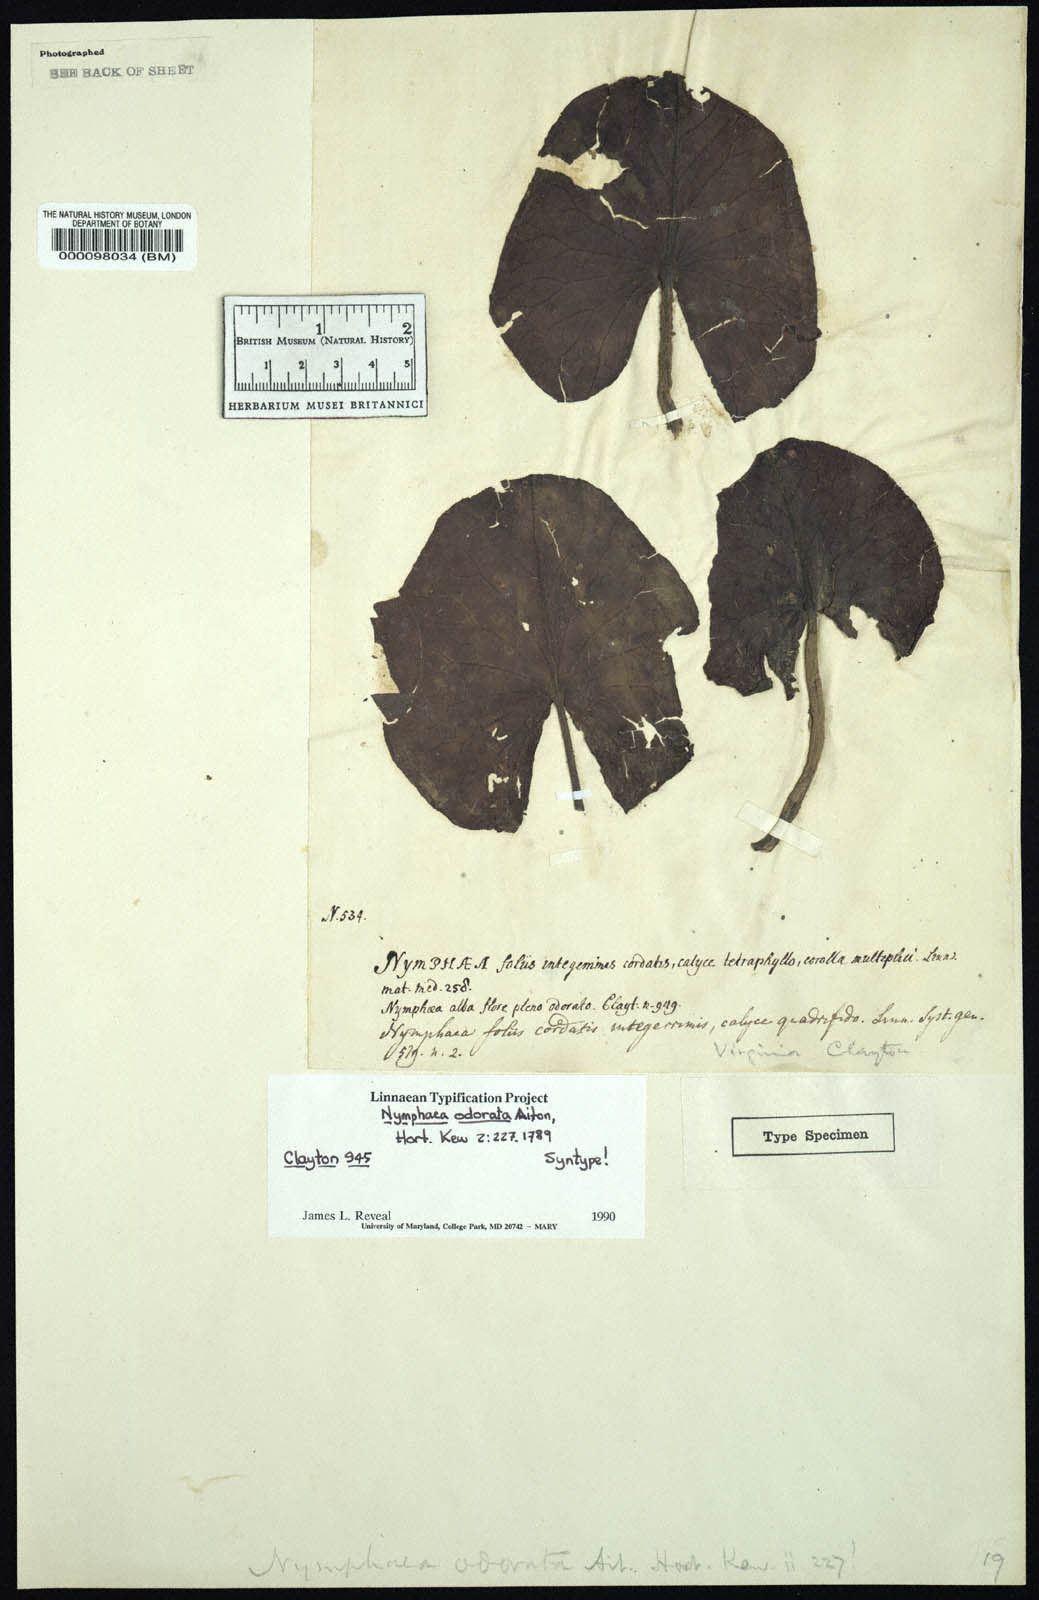 Photographed
SEE BACK OF SHEET
THE NATURAL HISTORY MUSEUM, LONDON
DEPARTMENT OF BOTANY
000098034 (BM)
1 2
BRITISH MUSEUM (NATURAL HISTORY)
1 2 3 4 5
HERBARIUM MUSEI BRITANNICI
N. 534.
NYMPHÆA foliis integerrimis cordatis, calyce tetraphyllo, corolla multiplici. Linn.
mat. med. 258.
Nymphæa alba flore pleno odorato. Clayt. n.
Nymphaea foliis cordatis integerrimis, calyce quadrifido. Linn. Syst. gen.
579. n. 2.
Virginia Clayton
Linnaean Typification Project
Nymphaea odorata Aiton,
Hort. Kew 2: 227. 1789
Clayton 945 Syntype!
James L. Reveal 1990
University of Maryland, College Park, MD 20742 – MARY
Type Specimen
Nymphaea odorata Ait. Hort. Kew. ii 227!
19